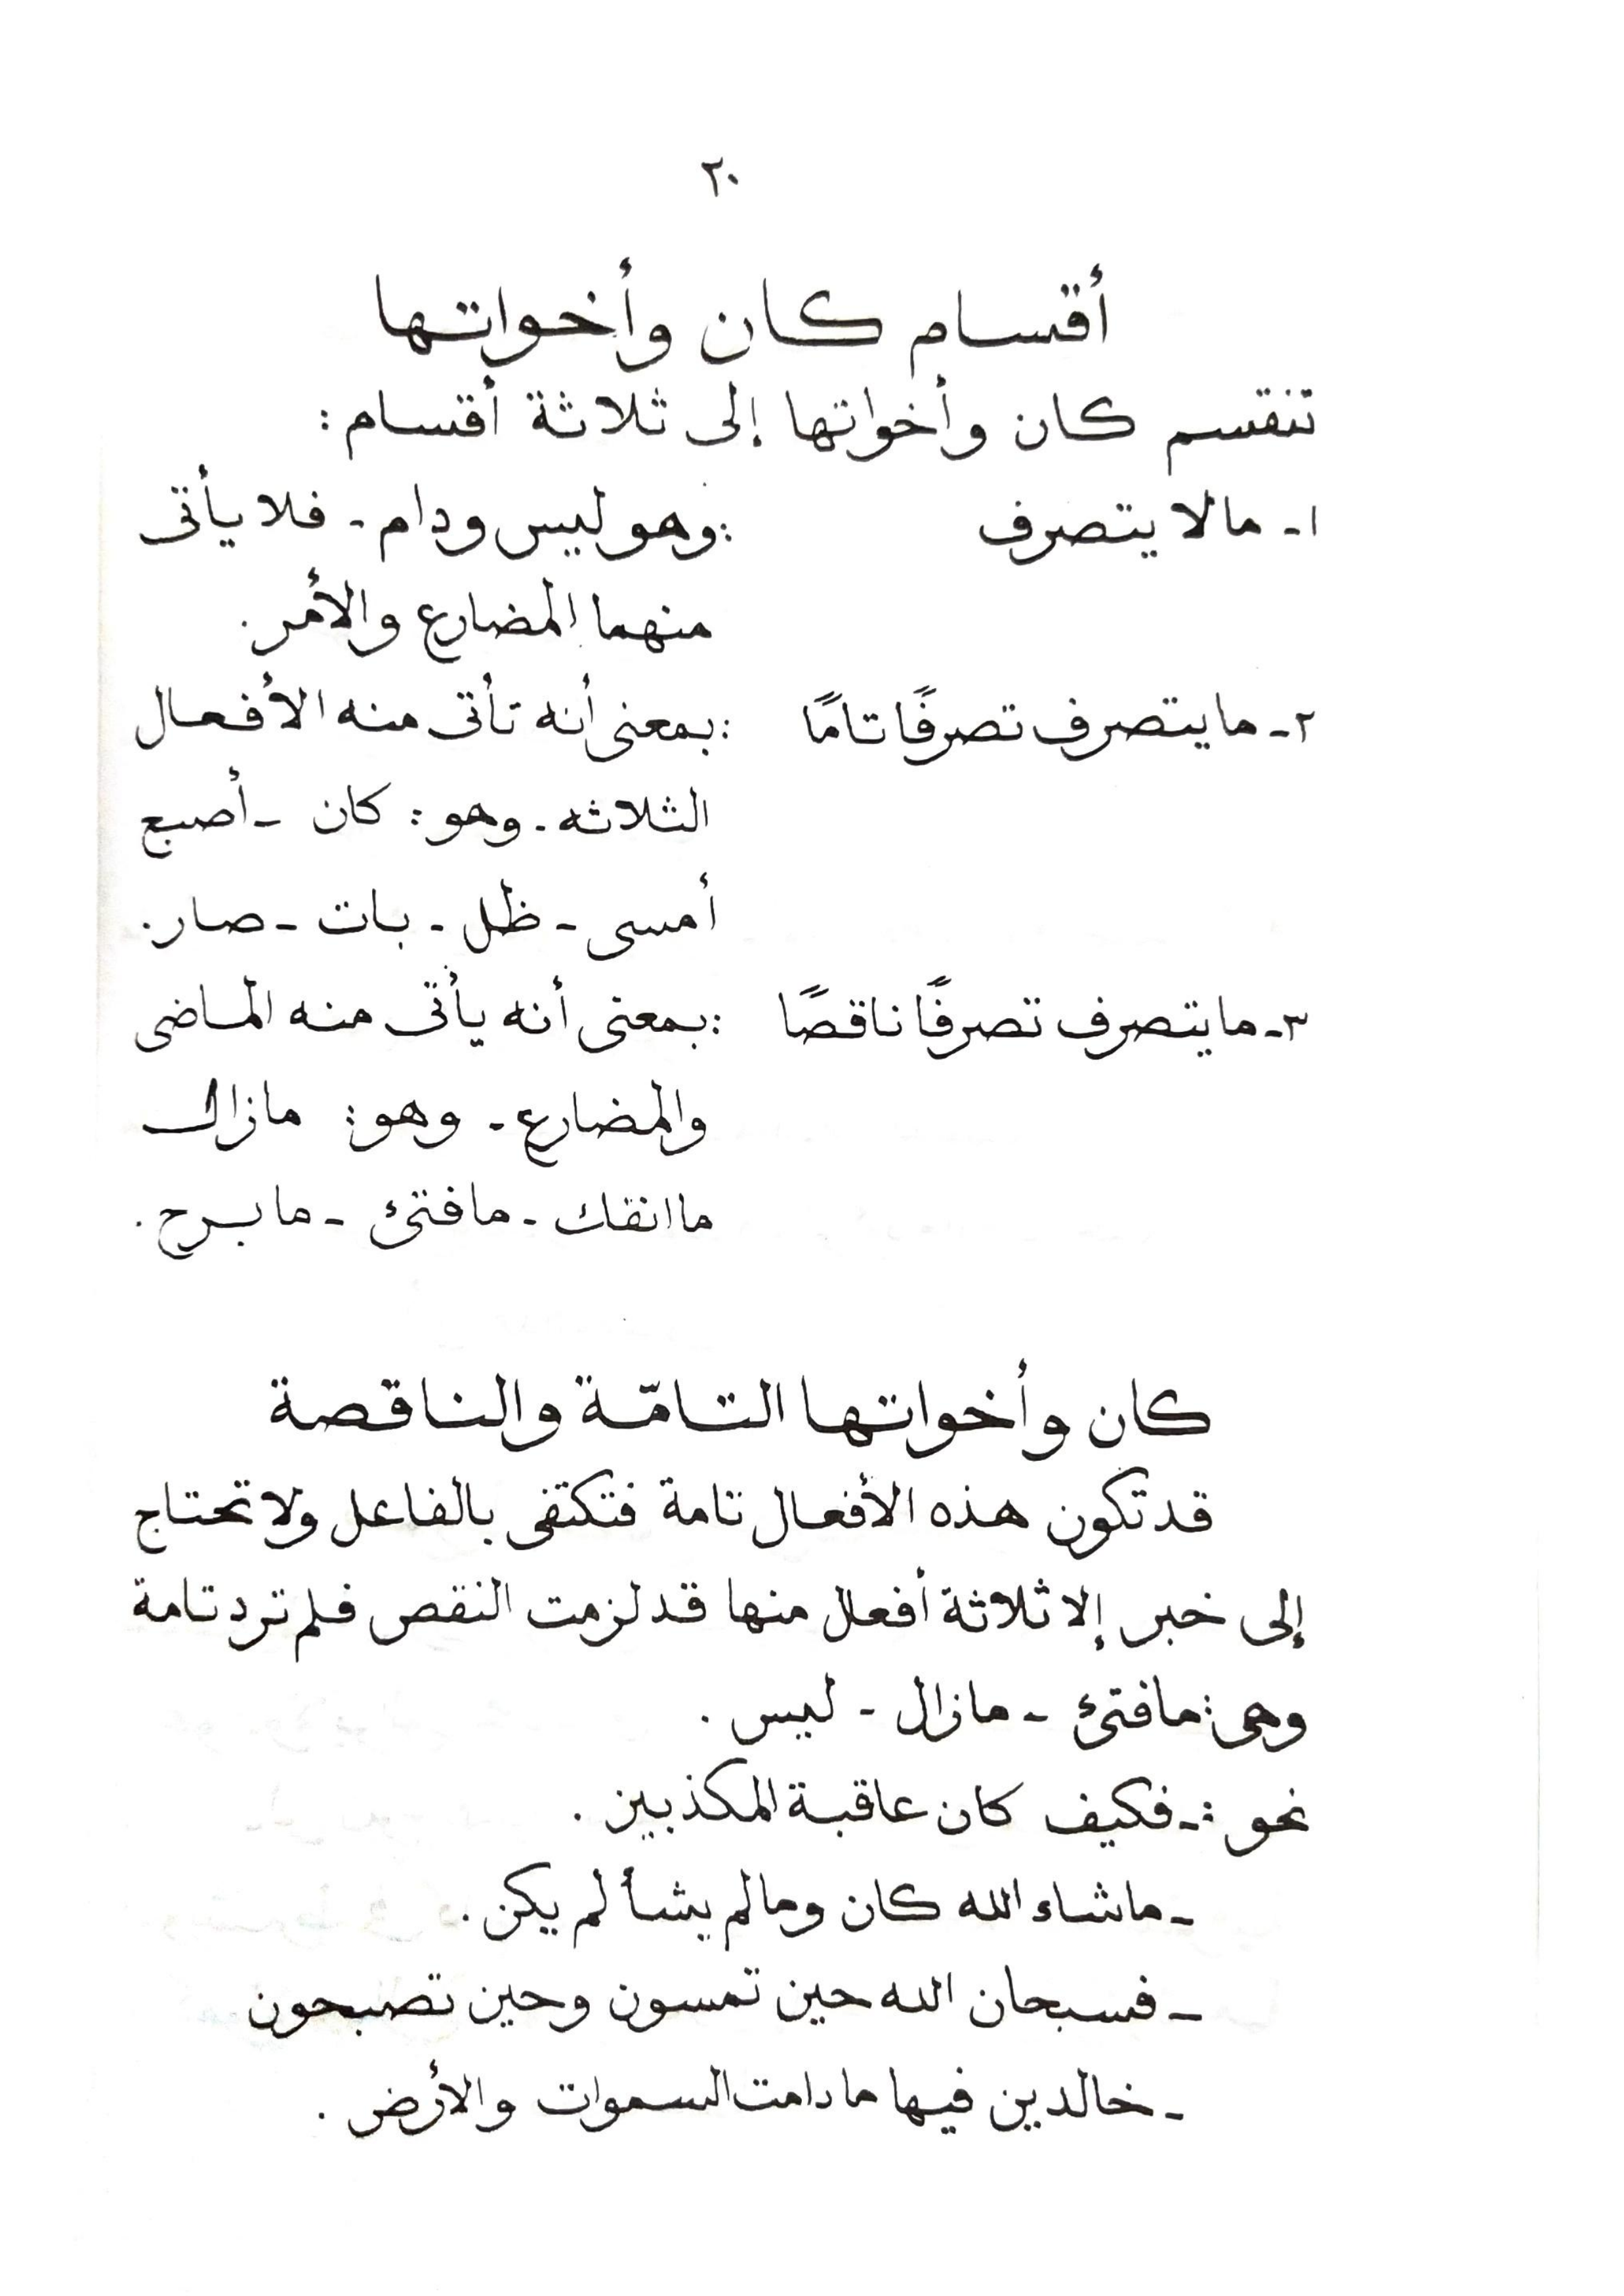 ٢٠
أقسام كان وأخواتها
تنقسم كان وأخواتها إلى ثلاثة أقسام :
١- مالا يتصرف : وهو ليس ودام - فلا يأتى
منهما المضارع والأمر .
٢- ما يتصرف تصرفًا تامًا : بمعنى أنه تأتى منه الأفعال
الثلاثه - وهو : كان - أصبع
أمسى - ظل - بات - صار .
٣- ما يتصرف تصرفًا ناقصًا : بمعنى أنه يأتى منه الماضى
والمضارع - وهو : مازال
ما انقك - مافتئ - ما برح .
كان وأخواتها التامّة والناقصة
قد تكون هذه الأفعال تامة فتكتفى بالفاعل ولا تحتاج
إلى خبر إلا ثلاثة أفعل منها قد لزمت النقص فلم ترد تامة
وهى : مافتئ - مازال - ليس .
نحو :- فكيف كان عاقبة المكذبين .
- ماشاء الله كان ومالم يشأ لم يكن .
- فسبحان الله حين تمسون وحين تصبحون
- خالدين فيها مادامت السموات والأرض .